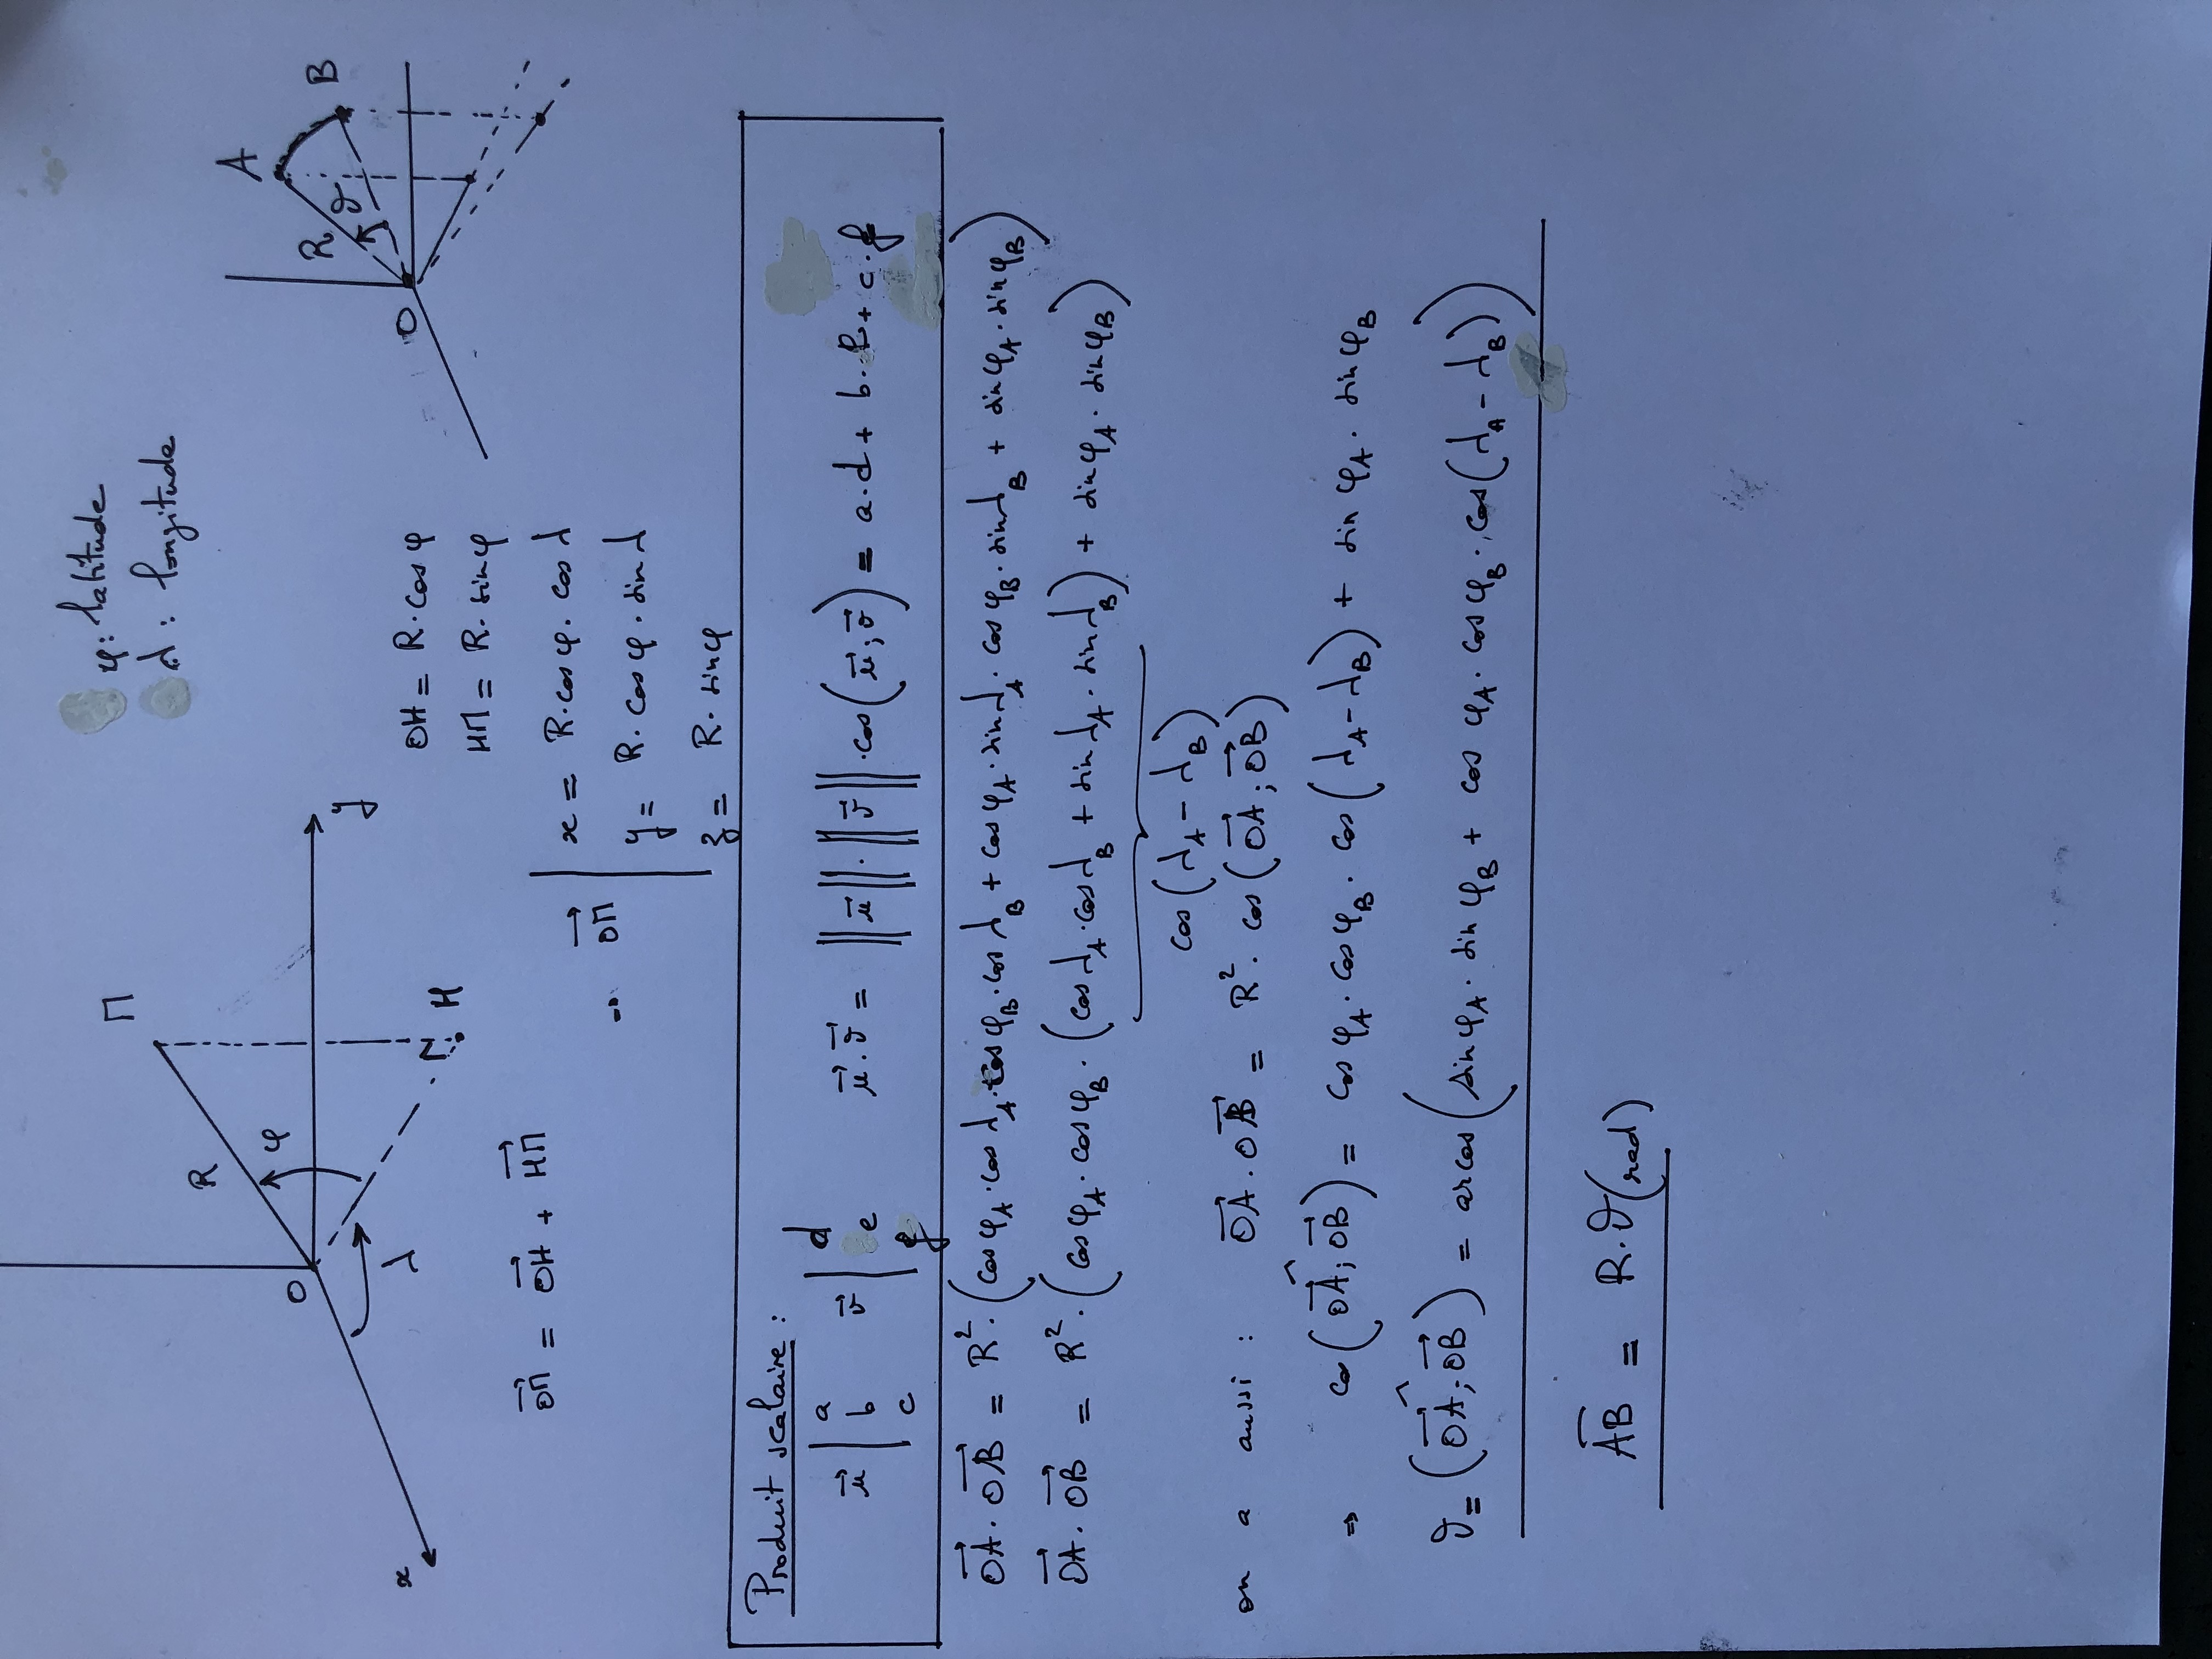 φ : latitude
λ : longitude
M
R
φ
O
y
x
λ
H
A
R
ϑ
B
O
OH = R · cos φ
HM = R · sin φ
→OM = →OH + →HM
→OM | x = R · cos φ · cos λ
y = R · cos φ · sin λ
z = R · sin φ
Produit scalaire :
→u | a b c →v | d e f →u · →v = ‖→u‖ · ‖→v‖ · cos(→u ; →v) = a · d + b · e + c · f
→OA · →OB = R² · (cos φ_A · cos λ_A · cos φ_B · cos λ_B + cos φ_A · sin λ_A · cos φ_B · sin λ_B + sin φ_A · sin φ_B)
→OA · →OB = R² · (cos φ_A · cos φ_B · (cos λ_A · cos λ_B + sin λ_A · sin λ_B) + sin φ_A · sin φ_B)
cos(λ_A − λ_B)
on a aussi : →OA · →OB = R² · cos(→OA ; →OB)
⇒ cos(→OA ; →OB) = cos φ_A · cos φ_B · cos(λ_A − λ_B) + sin φ_A · sin φ_B
ϑ = (→OA ; →OB) = arcos(sin φ_A · sin φ_B + cos φ_A · cos φ_B · cos(λ_A − λ_B))
⌒AB = R · ϑ(rad)